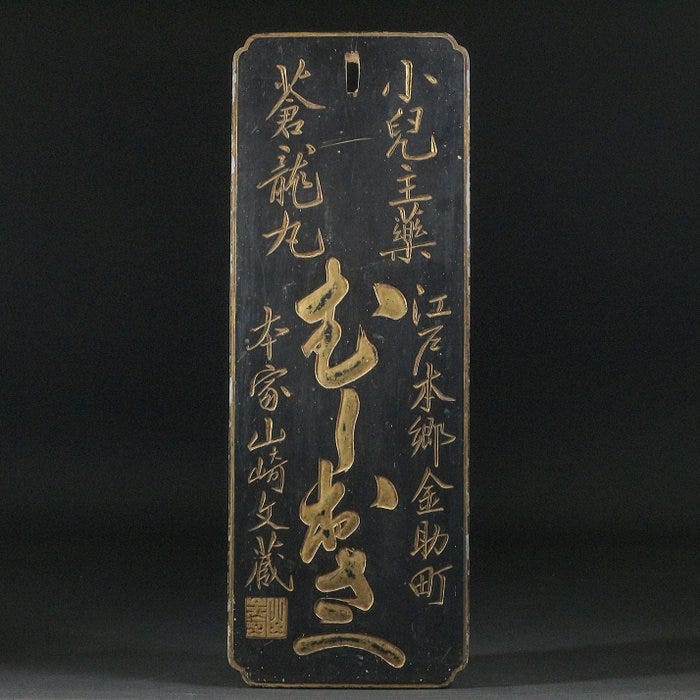 小兒主藥
江戸本郷金助町
むしおさへ
蒼龍丸
本家山崎文藏